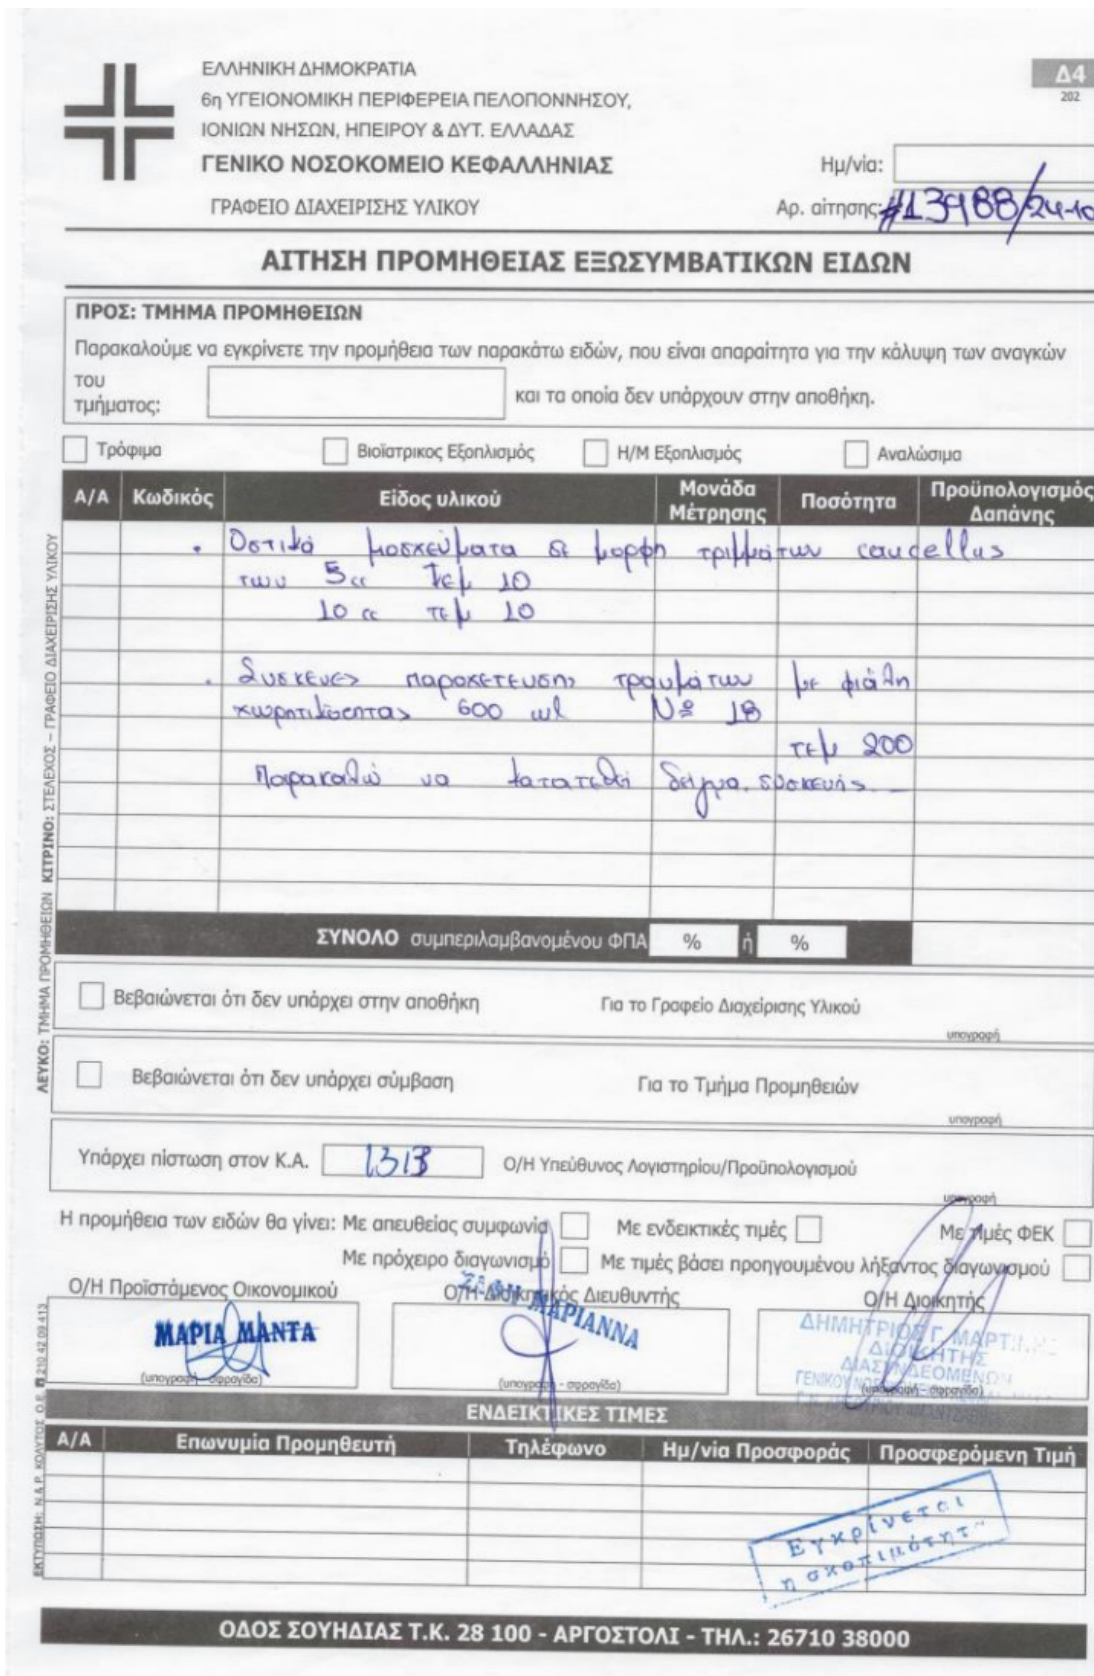 ΕΛΛΗΝΙΚΗ ΔΗΜΟΚΡΑΤΙΑ
6η ΥΓΕΙΟΝΟΜΙΚΗ ΠΕΡΙΦΕΡΕΙΑ ΠΕΛΟΠΟΝΝΗΣΟΥ,
ΙΟΝΙΩΝ ΝΗΣΩΝ, ΗΠΕΙΡΟΥ & ΔΥΤ. ΕΛΛΑΔΑΣ
ΓΕΝΙΚΟ ΝΟΣΟΚΟΜΕΙΟ ΚΕΦΑΛΛΗΝΙΑΣ
ΓΡΑΦΕΙΟ ΔΙΑΧΕΙΡΙΣΗΣ ΥΛΙΚΟΥ
Δ4
202
Ημ/νία:
Αρ. αίτησης: #13988/24-10
ΑΙΤΗΣΗ ΠΡΟΜΗΘΕΙΑΣ ΕΞΩΣΥΜΒΑΤΙΚΩΝ ΕΙΔΩΝ
ΠΡΟΣ: ΤΜΗΜΑ ΠΡΟΜΗΘΕΙΩΝ
Παρακαλούμε να εγκρίνετε την προμήθεια των παρακάτω ειδών, που είναι απαραίτητα για την κάλυψη των αναγκών
του τμήματος: και τα οποία δεν υπάρχουν στην αποθήκη.
Τρόφιμα Βιοϊατρικος Εξοπλισμός Η/Μ Εξοπλισμός Αναλώσιμα
Α/Α Κωδικός Είδος υλικού Μονάδα Μέτρησης Ποσότητα Προϋπολογισμός Δαπάνης
. Οστικά μοσχεύματα σε μορφή τριμμάτων
των 5cc τεμ 10
10 cc τεμ 10
. Συσκευες παροχετευσης τραυμάτων με φιάλη
χωρητικοτητας 600 ml Nº 18
τεμ 200
Παρακαλώ να κατατεθεί δείγμα συσκευής.
ΣΥΝΟΛΟ συμπεριλαμβανομένου ΦΠΑ % ή %
Βεβαιώνεται ότι δεν υπάρχει στην αποθήκη Για το Γραφείο Διαχείρισης Υλικού
υπογραφή
Βεβαιώνεται ότι δεν υπάρχει σύμβαση Για το Τμήμα Προμηθειών
υπογραφή
Υπάρχει πίστωση στον Κ.Α. 1313 Ο/Η Υπεύθυνος Λογιστηρίου/Προϋπολογισμού
υπογραφή
Η προμήθεια των ειδών θα γίνει: Με απευθείας συμφωνία Με ενδεικτικές τιμές Με τιμές ΦΕΚ
Με πρόχειρο διαγωνισμό Με τιμές βάσει προηγουμένου λήξαντος διαγωνισμού
Ο/Η Προϊστάμενος Οικονομικού Ο/Η Διοικητικός Διευθυντής Ο/Η Διοικητής
ΜΑΡΙΑ ΜΑΝΤΑ
ΖΑΦΗ ΜΑΡΙΑΝΝΑ
ΔΗΜΗΤΡΙΟΣ Γ.
ΔΙΟΙΚΗΤΗΣ
ΔΙΑΣΥΝΔΕΟΜΕΝΩΝ
(υπογραφή - σφραγίδα) (υπογραφή - σφραγίδα) (υπογραφή - σφραγίδα)
ΕΝΔΕΙΚΤΙΚΕΣ ΤΙΜΕΣ
Α/Α Επωνυμία Προμηθευτή Τηλέφωνο Ημ/νία Προσφοράς Προσφερόμενη Τιμή
Εγκρίνεται
η σκοπιμότητ
ΟΔΟΣ ΣΟΥΗΔΙΑΣ Τ.Κ. 28 100 - ΑΡΓΟΣΤΟΛΙ - ΤΗΛ.: 26710 38000
ΛΕΥΚΟ: ΤΜΗΜΑ ΠΡΟΜΗΘΕΙΩΝ ΚΙΤΡΙΝΟ: ΣΤΕΛΕΧΟΣ – ΓΡΑΦΕΙΟ ΔΙΑΧΕΙΡΙΣΗΣ ΥΛΙΚΟΥ
ΕΚΤΥΠΩΣΗ: Ν.& Ρ. ΚΟΛΥΣΟΣ Ο.Ε. 210 42 09 413